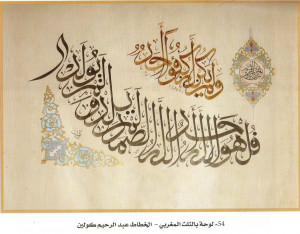 قل هو الله أحد الله الصمد لم يلد ولم يولد
ولم يكن له كفوا أحد
54- لوحة بالثلث المغربي - الخطاط عبد الرحيم كولين